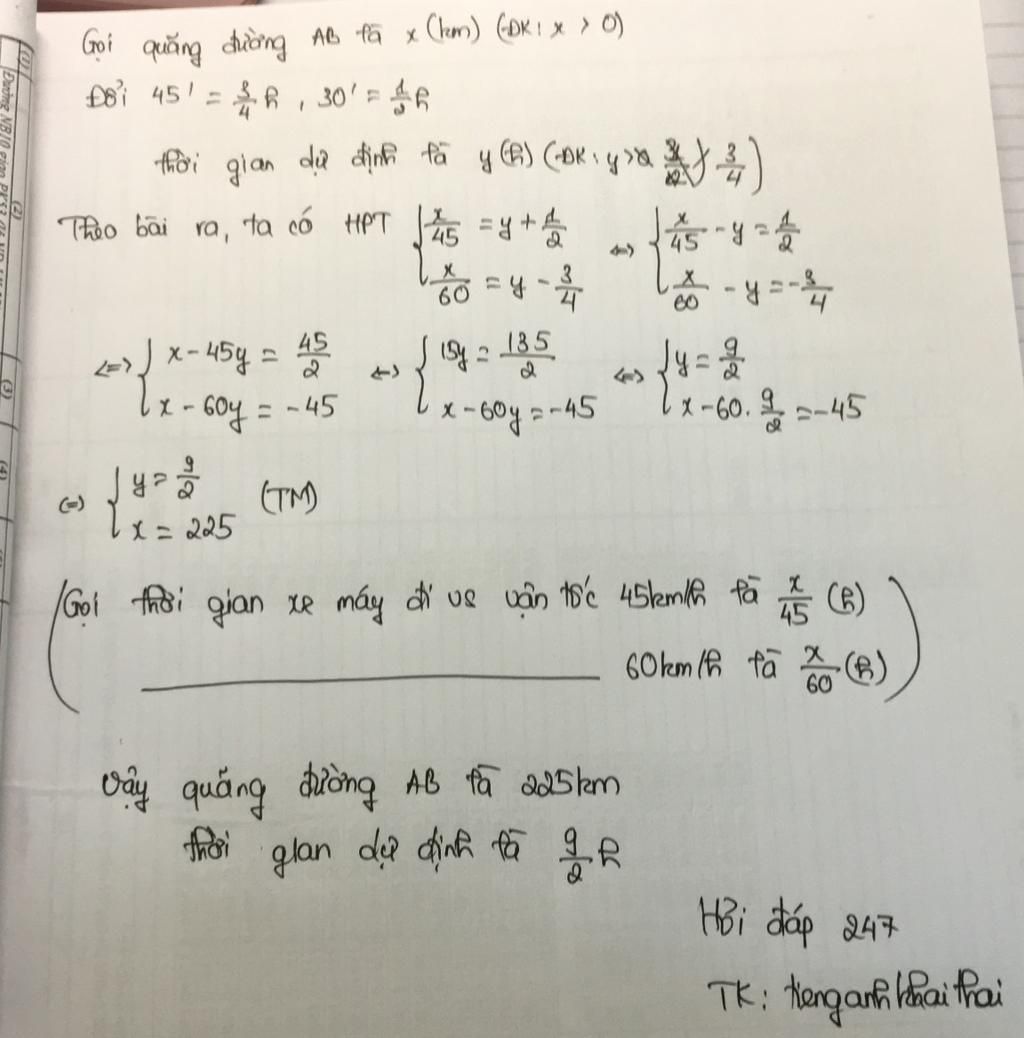 Gọi quãng đường AB là x (km) (ĐK: x > 0)
Đổi 45' = 3/4 h, 30' = 1/2 h
thời gian dự định là y (h) (ĐK: y > 3/4)
Theo bài ra, ta có HPT { x/45 = y + 1/2 ; x/60 = y - 3/4 <=> { x/45 - y = 1/2 ; x/60 - y = -3/4
<=> { x - 45y = 45/2 ; x - 60y = -45 <=> { 15y = 135/2 ; x - 60y = -45 <=> { y = 9/2 ; x - 60. 9/2 = -45
<=> { y = 9/2 ; x = 225 (TM)
(Gọi thời gian xe máy đi vs vận tốc 45km/h là x/45 (h)
60km/h là x/60 (h))
Vậy quãng đường AB là 225km
thời gian dự định là 9/2 h
Hỏi đáp 247
TK: tienganhkhaithai
(1)
(2)
(3)
(4)